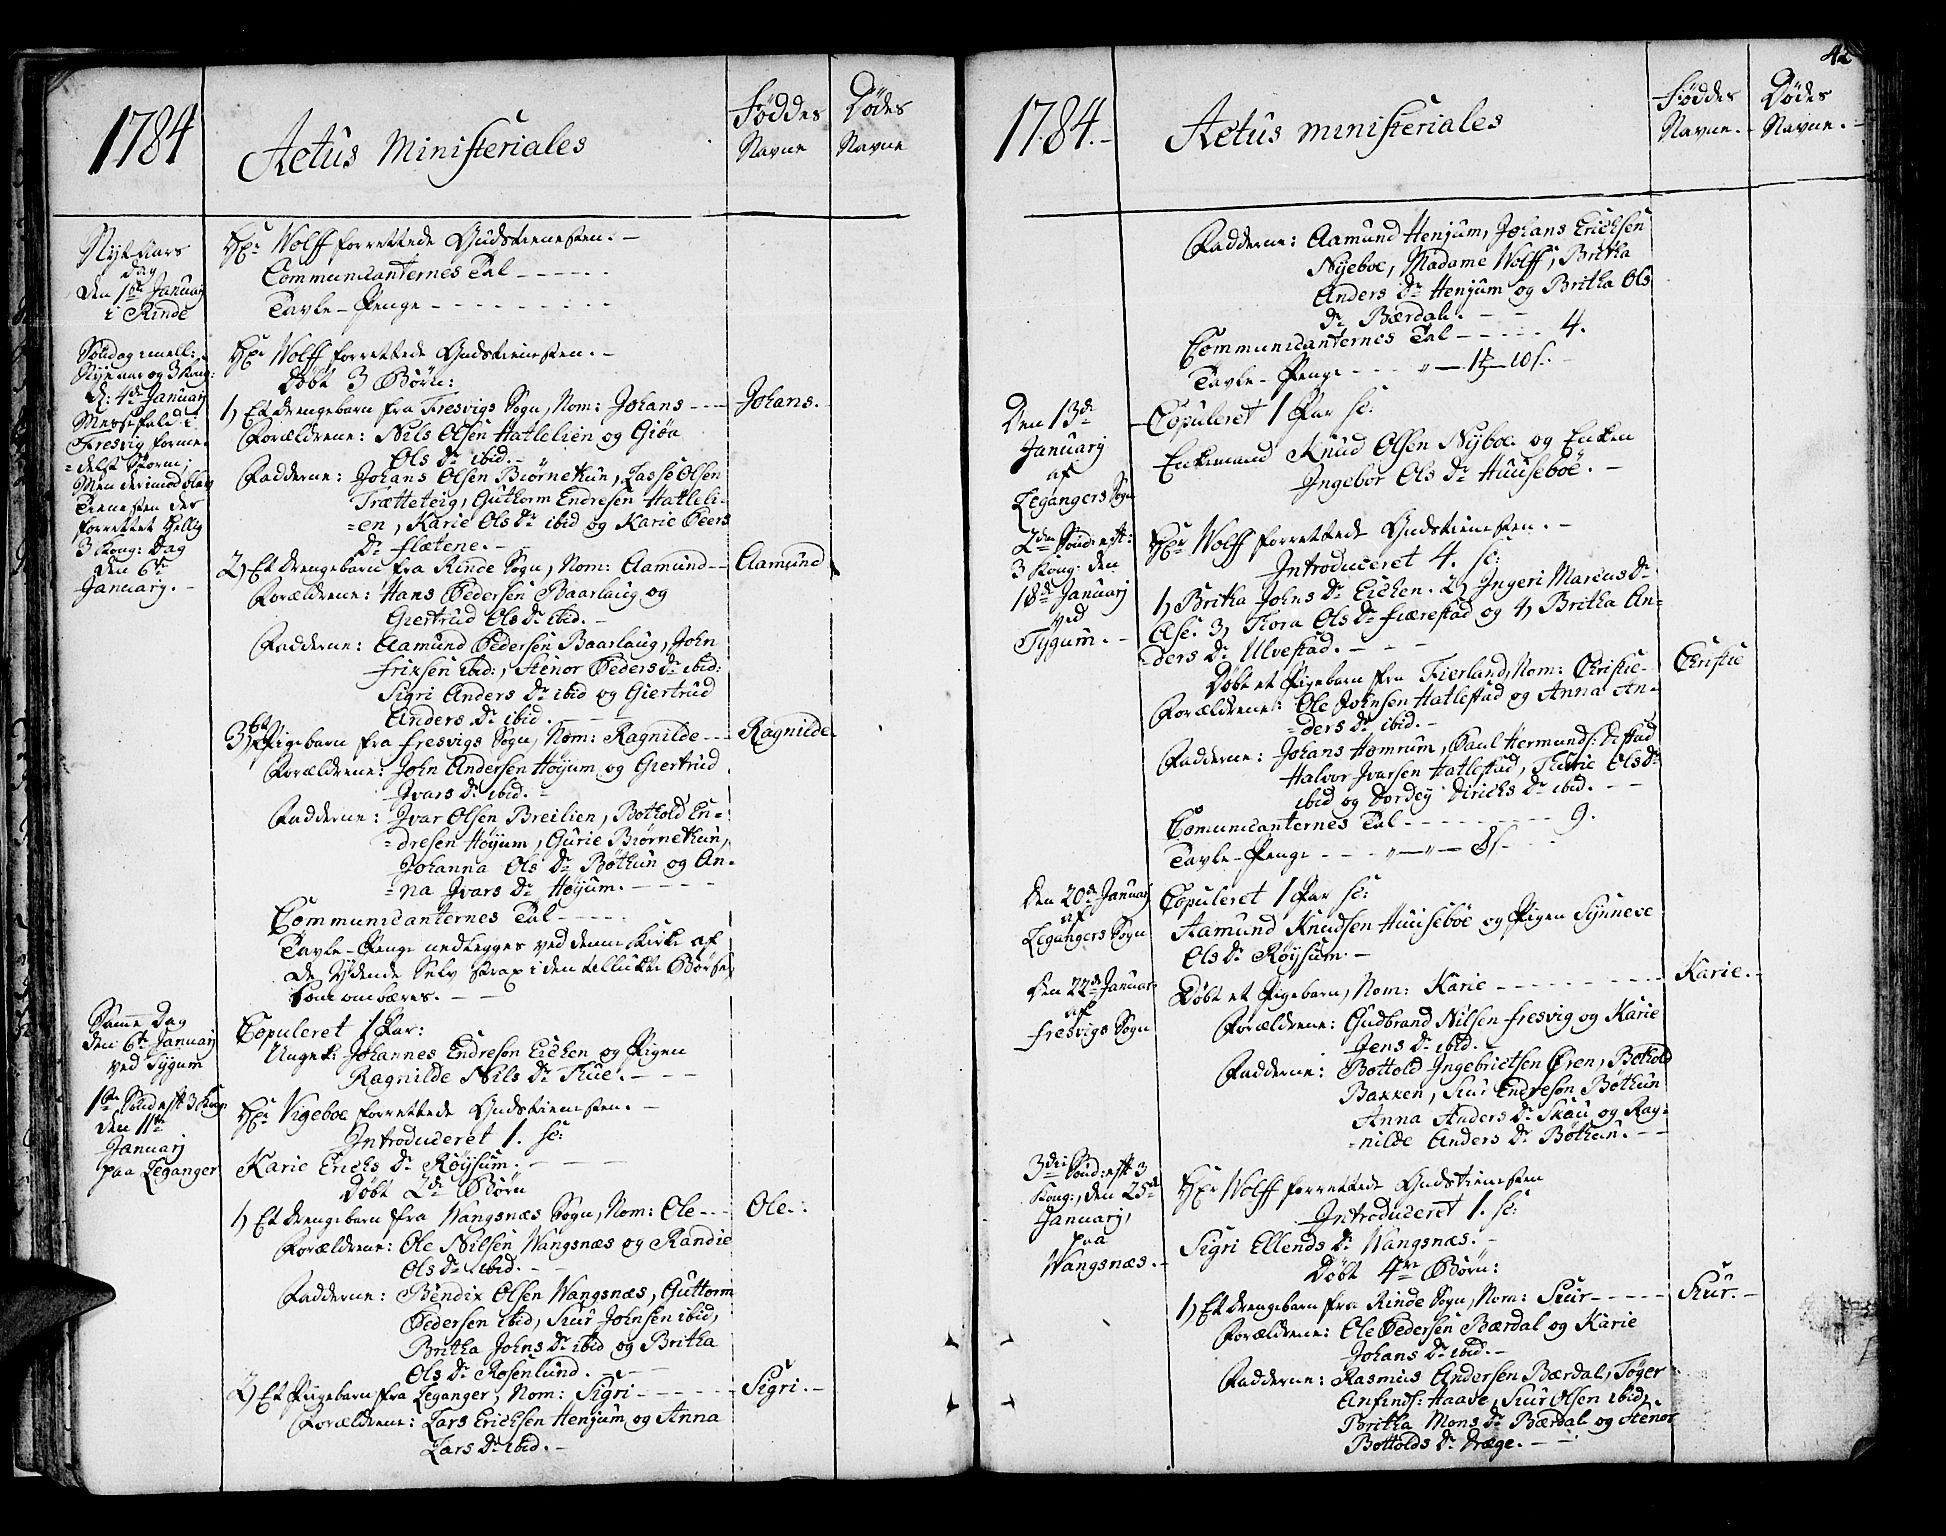 1784
Actus Ministeriales
Föddes
Navne
Dödes
Navne
Nyt Aars
Dag
den 1te Januarj
i Rinde
Hr Wolff forrettede Gudstienesten. -
Communicanternes Tal - - - - - -
Tavle-Penge - - - - - - - - -
Söndag imell:
Nyeaar og 3 Kong:
d: 4de Januarj
Messefald i
Fresvig forme-
-delst Storm;
Men derimod blev
Tienesten der
forrettet Hellig
3 Kong: Dag
den 6te
Januarj. -
Hr Wolff forrettede Gudstienesten. -
Döbt 3 Börn:
1) Et drengebarn fra Fresvigs Sogn, Nom: Johans - - - Johans. -
Forældrene: Nils Olsen Hatlelien og Giöa
Ols Dr ibid. -
Fadderne: Johans Olsen Biörnetun, Lasse Olsen
Trætteteig, Guttorm Endresen Hatleli-
-en, Karie Ols Dr ibid og Karie Peers
Dr flætene. -
2) Et drengebarn fra Rinde Sogn, Nom: Aamund - - Aamund
Forældrene: Hans Pedersen Baarlaug og
Giertrud Ols Dr ibid. -
Fadderne: Aamund Pedersen Baarlaug, John
friksen ibid:, Stenor Peders Dr ibid:
Sigri Anders Dr ibid og Giertrud
Anders Dr ibid. - - -
3) Et Pigebarn fra fresvigs Sogn, Nom: Ragnilde - - Ragnilde
Forældrene: John Andersen Höyum og Giertrud
Ivars Dr ibid. -
Fadderne: Ivar Olsen Breilien, Bothold En-
-dresen Höyum, Gurie Biörnetun,
Johanna Ols Dr Böthun og An-
-na Ivars Dr Höyum. - - - - -
Communicanternes Tal - - - - -
Tavle-Penge nedlegges ved denne Kirke af
de Ydende Selv strax i den tillukte Börse,
som ombæres. - - -
Samme Dag
den 6te Januarj
ved Tygum
Copuleret 1 Par:
Ungek: Johannes Endreson Eichen og Pigen
Ragnilde Nils Dr Tue. - - -
1te Sönd: eft 3 Kong
den 11te
Januarj
paa Leganger
Hr Vigeboe forrettede Gudstienesten. -
Introduceret 1. sc:
Karie Erichs Dr Röysum. - - - -
Döbt 2de Börn
1) Et drengebarn fra Wangsnæs Sogn, Nom: Ole - - - Ole -:
Forældrene: Ole Nilsen Wangsnæs og Randie
Ols Dr ibid. - -
Fadderne: Bendix Olsen Wangsnæs, Guttorm
Pedersen ibid, Siur Johnsen ibid,
Britha Johns Dr ibid og Britha
Ols Dr Rosenlund. - - -
2) Et Pigebarn fra Leganger, Nom: Sigri - - - - - - Sigri. -
Forældrene: Lars Erichsen Henjum og Anna
Lars Dr ibid. -
42
1784. -
Actus ministeriales
Föddes
Navne. -
Dödes
Navne. -
Fadderne: Aamund Henjum, Johans Erichsen
Nyeboe, Madame Wolff, Britha
Anders Dr Henjum og Britha Ols
Dr Bærdal. - - -
Communicanternes Tal - - - - - 4.
Tavle-Penge - - - " - 1 - 10 s. -
Den 13de
Januarj
af
Legangers Sogn
Copuleret 1 Par sc:
Enkemand Knud Olsen Nyboe og Enken
Ingebor Ols Dr Huuseboe. -
2den Sönd: eft:
3 Kong: den
18de Januarj
ved
Tygum. -
Hr Wolff forrettede Gudstienesten. -
Introduceret 4. sc:
1) Britha Johns Dr Eichen. 2) Ingeri Marcus Dr
Ase. 3) Thora Ols Dr fiærestad og 4) Britha An-
-ders Dr Ulvestad. - - -
Döbt et Pigebarn fra Fierland, Nom: Christie - Christie
Forældrene: Ole Johnsen Hatlestad og Anna An-
-ders Dr ibid. -
Fadderne: Johans Homrum, Paul Hermunds: Distad
Halvor Ivarsen Hatlestad, Thurie Ols Dr
ibid og Dordey Dirichs Dr ibid. - - -
Communicanternes Tal - - - - - - - - - 9.
Tavle-Penge - - - " - " - 8 s - - -
Den 20de Januarj
af
Legangers Sogn
Copuleret 1 Par sc:
Aamund Knudsen Huuseboe og Pigen Synneve
Ols Dr Röysum. -
Den 22de Januar:
af
fresvigs Sogn
Döbt et Pigebarn, Nom: Karie - - - - - - - - - Karie. -
Forældrene: Gudbrand Nilsen fresvig og Karie
Jens Dr ibid. -
Fadderne: Bottold Ingebrictsen Ören, Bothold
Bakken, Siur Endreson Böthun
Anna Anders Dr Skau og Rag-
-nilde Anders Dr Böthun. - -
3die Sönd: eft 3
Kong:, den 25de
Januarj,
paa
Wangsnæs. -
Hr Wolff forrettede Gudstienesten
Introduceret 1. sc:
Sigri Ellends Dr Wangsnæs. -
Döbt 4re Börn:
1) Et drengebarn fra Rinde Sogn, Nom: Siur - - - - - Siur. -
Forældrene: Ole Pedersen Bærdal og Karie
Johans Dr ibid. -
Fadderne: Rasmus Andersen Bærdal, Töger
Anfinds: Haave, Siur Olsen ibid,
Britha Mons Dr Bærdal og Stenor
Bottolds Dr dræge. - -